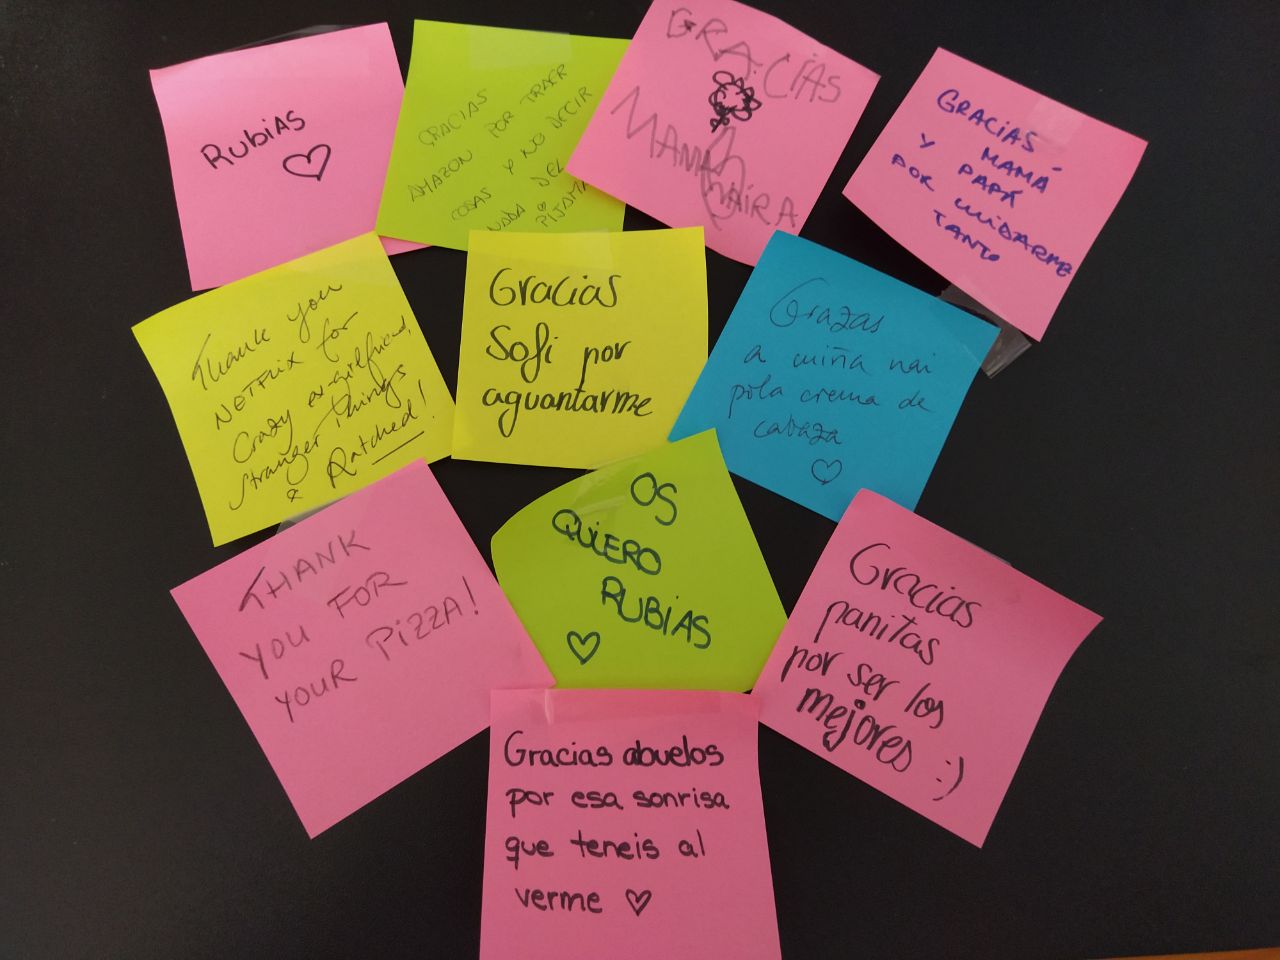 Rubias
GRACIAS
AMAZON POR TRAER
COSAS Y NO DECIR
NADA DEL
PIJAMA
GRACIAS
MAMÁ
NAIRA
GRACIAS
Y MAMÁ
PAPÁ
POR CUIDARME
TANTO
Thank you
NETFLIX for
Crazy ex-girlfriend,
Stranger Things
& Ratched!
Gracias
Sofi por
aguantarme
Grazas
a miña nai
pola crema de
cabaza
THANK
YOU FOR
YOUR PIZZA!
OS
QUIERO
RUBIAS
Gracias
panitas
por ser los
mejores :)
Gracias abuelos
por esa sonrisa
que teneis al
verme